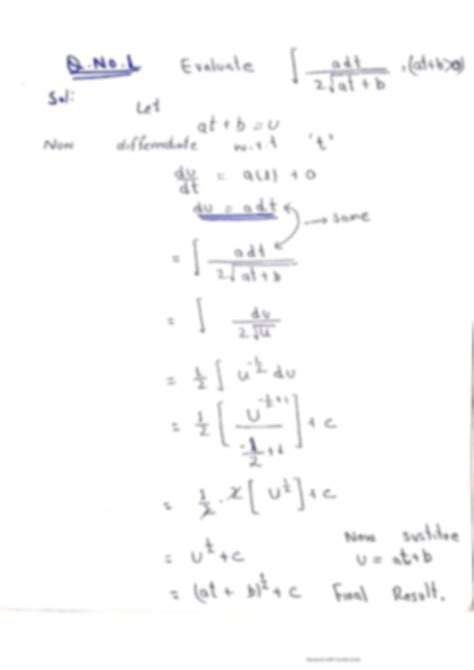 Q.No.1 Evaluate ∫ adt / 2√at + b , (at+b>0)
Sol:
Let
at + b = u
Now differentiate w.r.t 't'
du/dt = a(1) + 0
du = adt → same
= ∫ adt / 2√at + b
= ∫ du / 2√u
= 1/2 ∫ u^-1/2 du
= 1/2 [ u^-1/2+1 / -1/2+1 ] + c
= 1/2 . 2 [ u^1/2 ] + c
Now sustitue
= u^1/2 + c u = at+b
= (at + b)^1/2 + c Final Result.